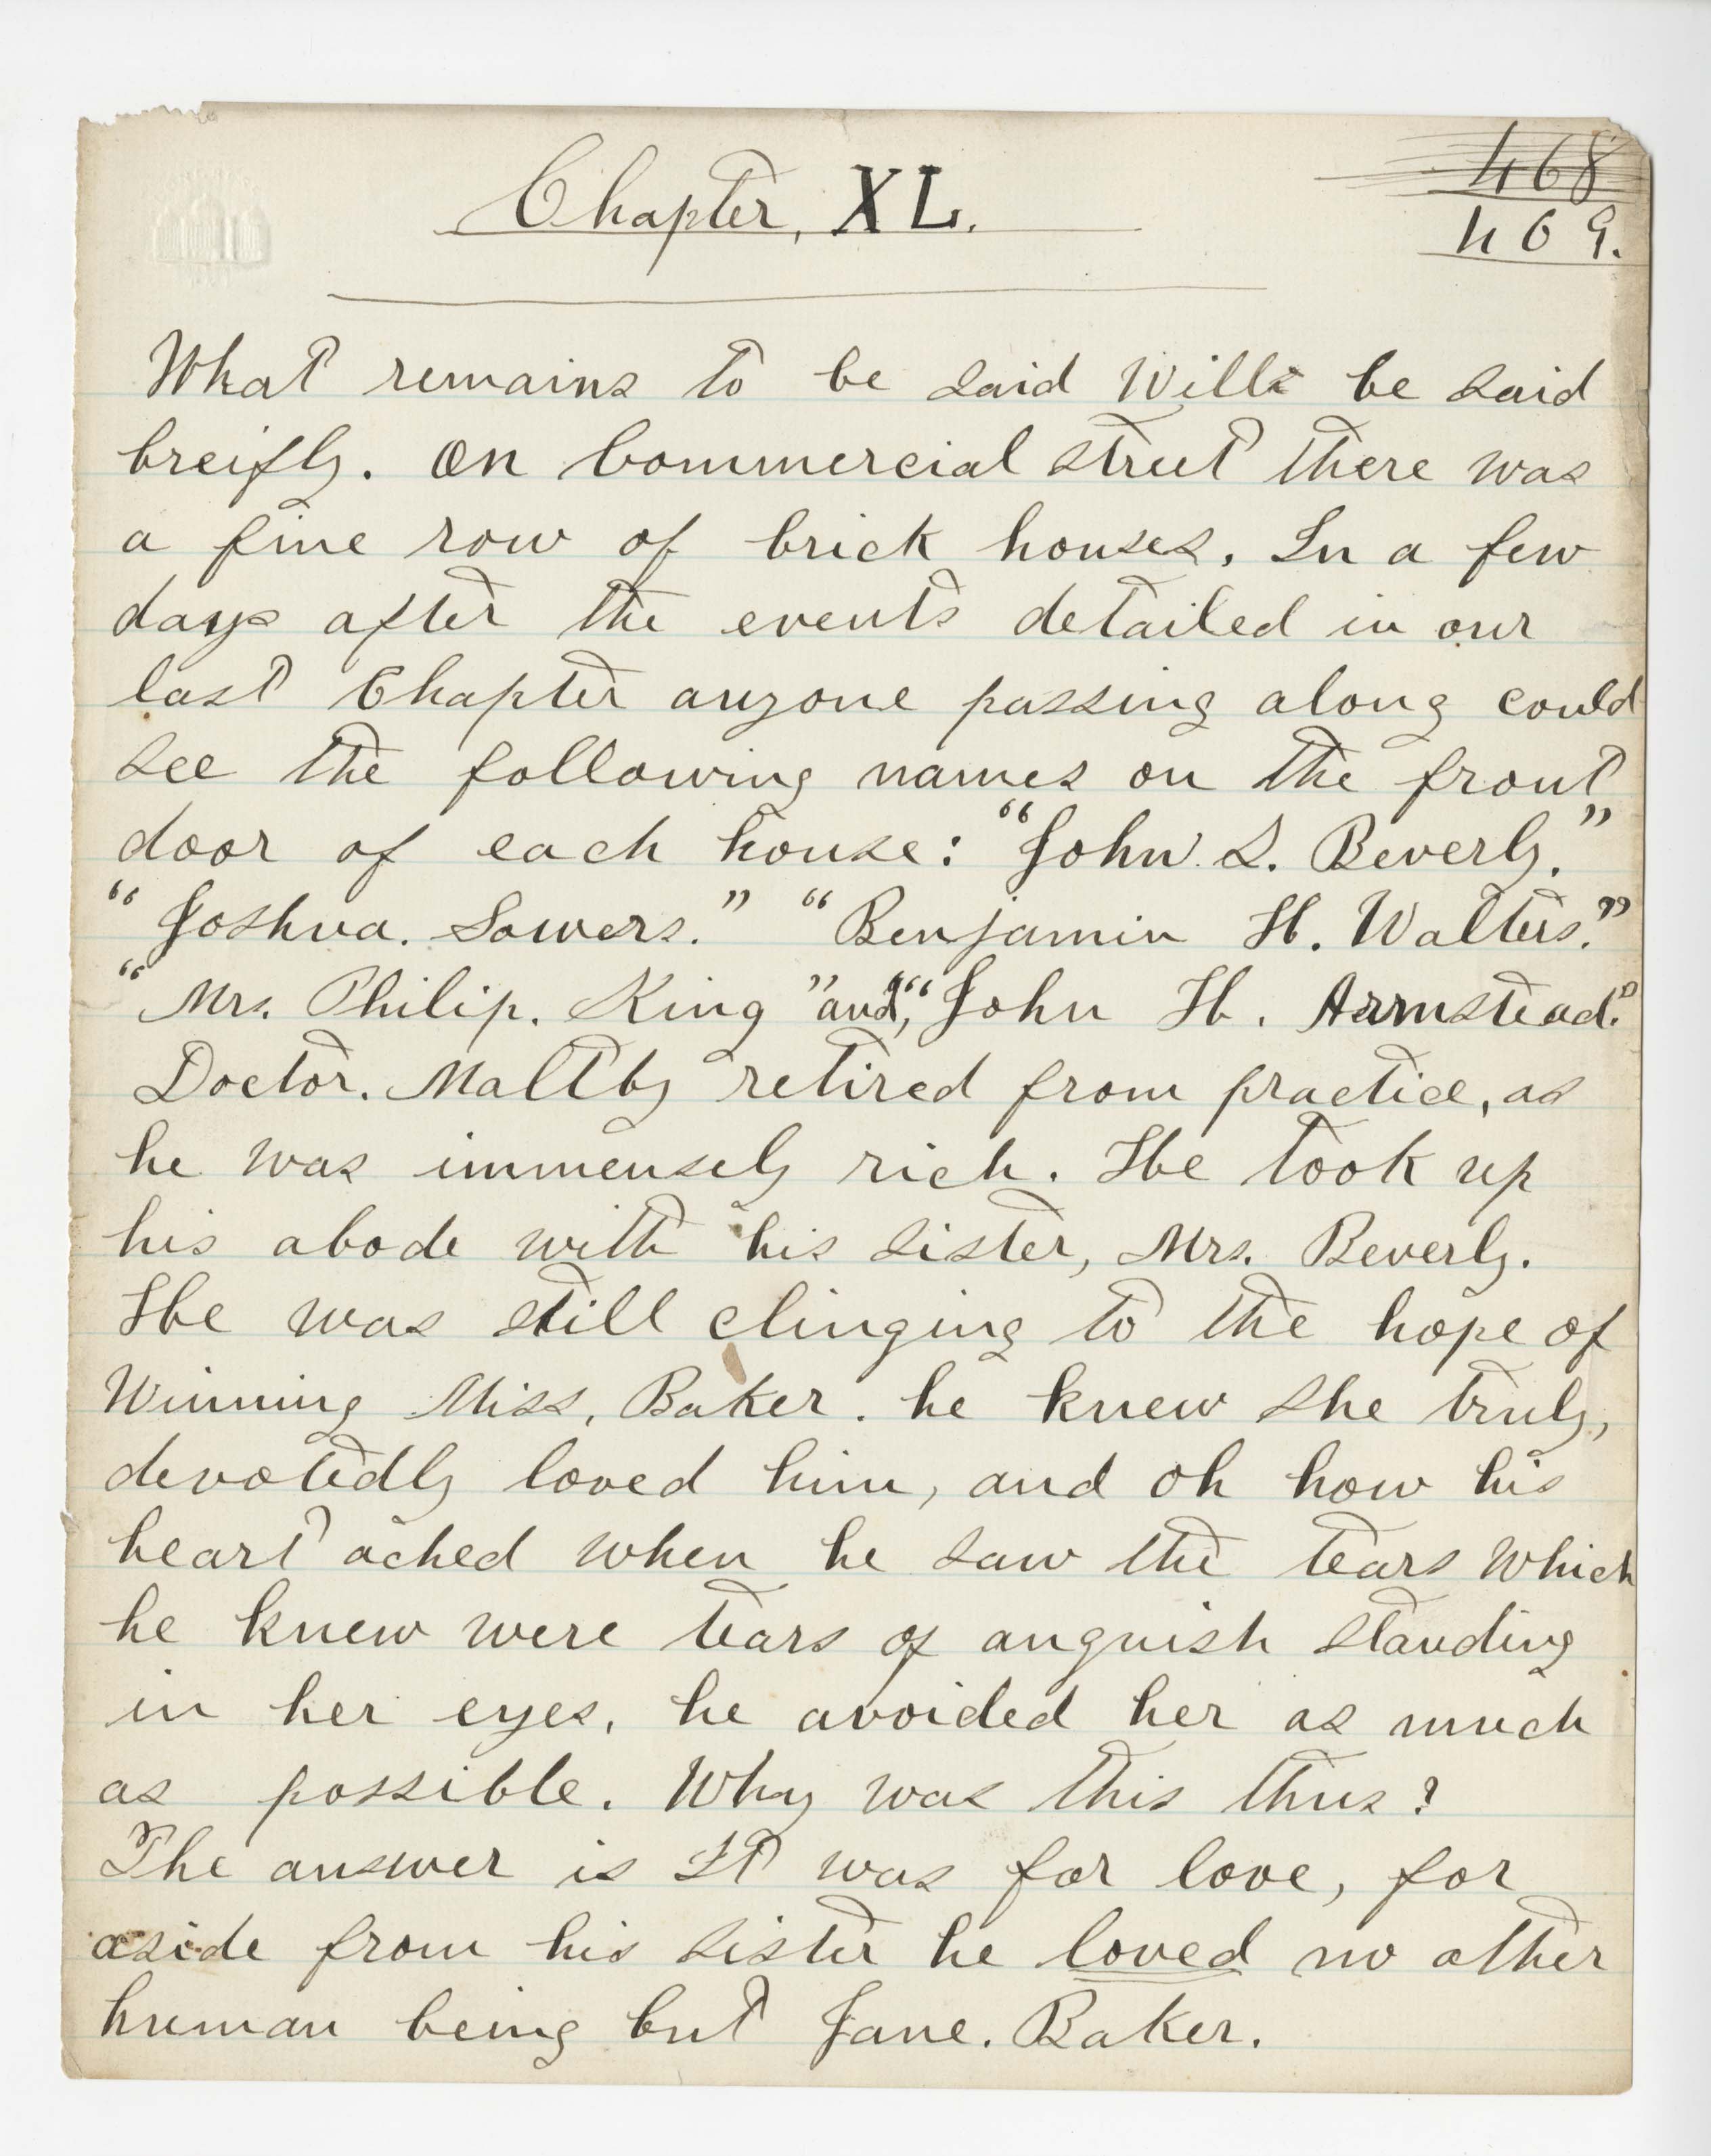 Chapter, XL.
468
469.
What remains to be said Will be said
breifly. On Commercial street there was
a fine row of brick houses. In a few
days after the events detailed in our
last Chapter anyone passing along could
see the following names on the front
door of each house: "John S. Beverly."
"Joshua. Sowers." "Benjamin H. Walters."
"Mrs. Philip. King" and, "John H. Armstead."
Doctor. Maltby retired from practice, as
he was immensely rich. He took up
his abode with his sister, Mrs. Beverly.
He was still clinging to the hope of
Winning Miss, Baker. he knew she truly,
devotedly loved him, and oh how his
heart ached when he saw the tears which
he knew were tears of anguish standing
in her eyes, he avoided her as much
as possible. Why was this thus?
The answer is It was for love, for
aside from his sister he loved no other
human being but Jane. Baker.